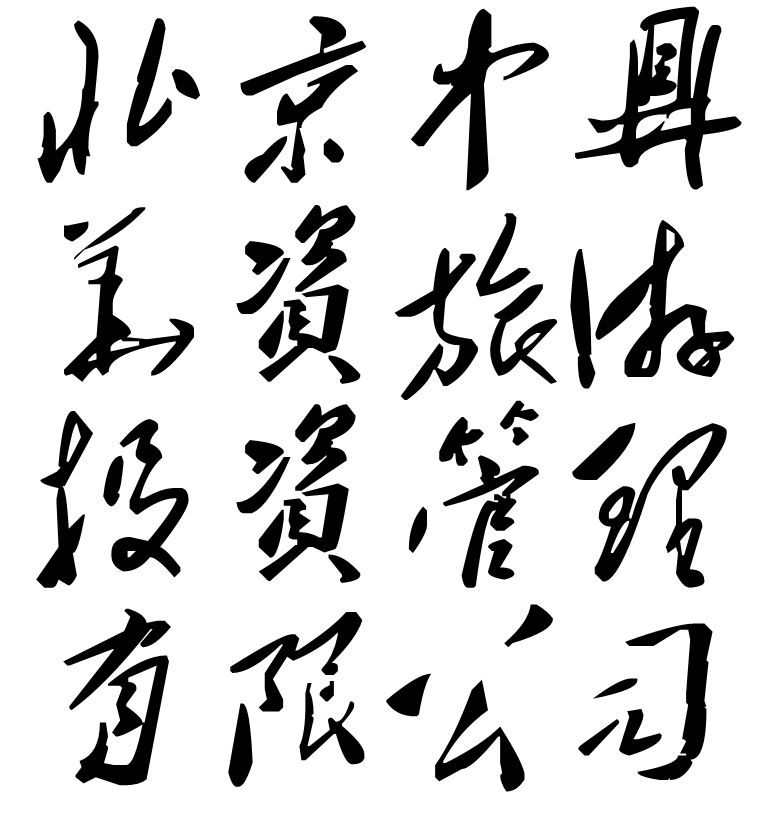 北京中興
美資旅游
投資管理
有限公司